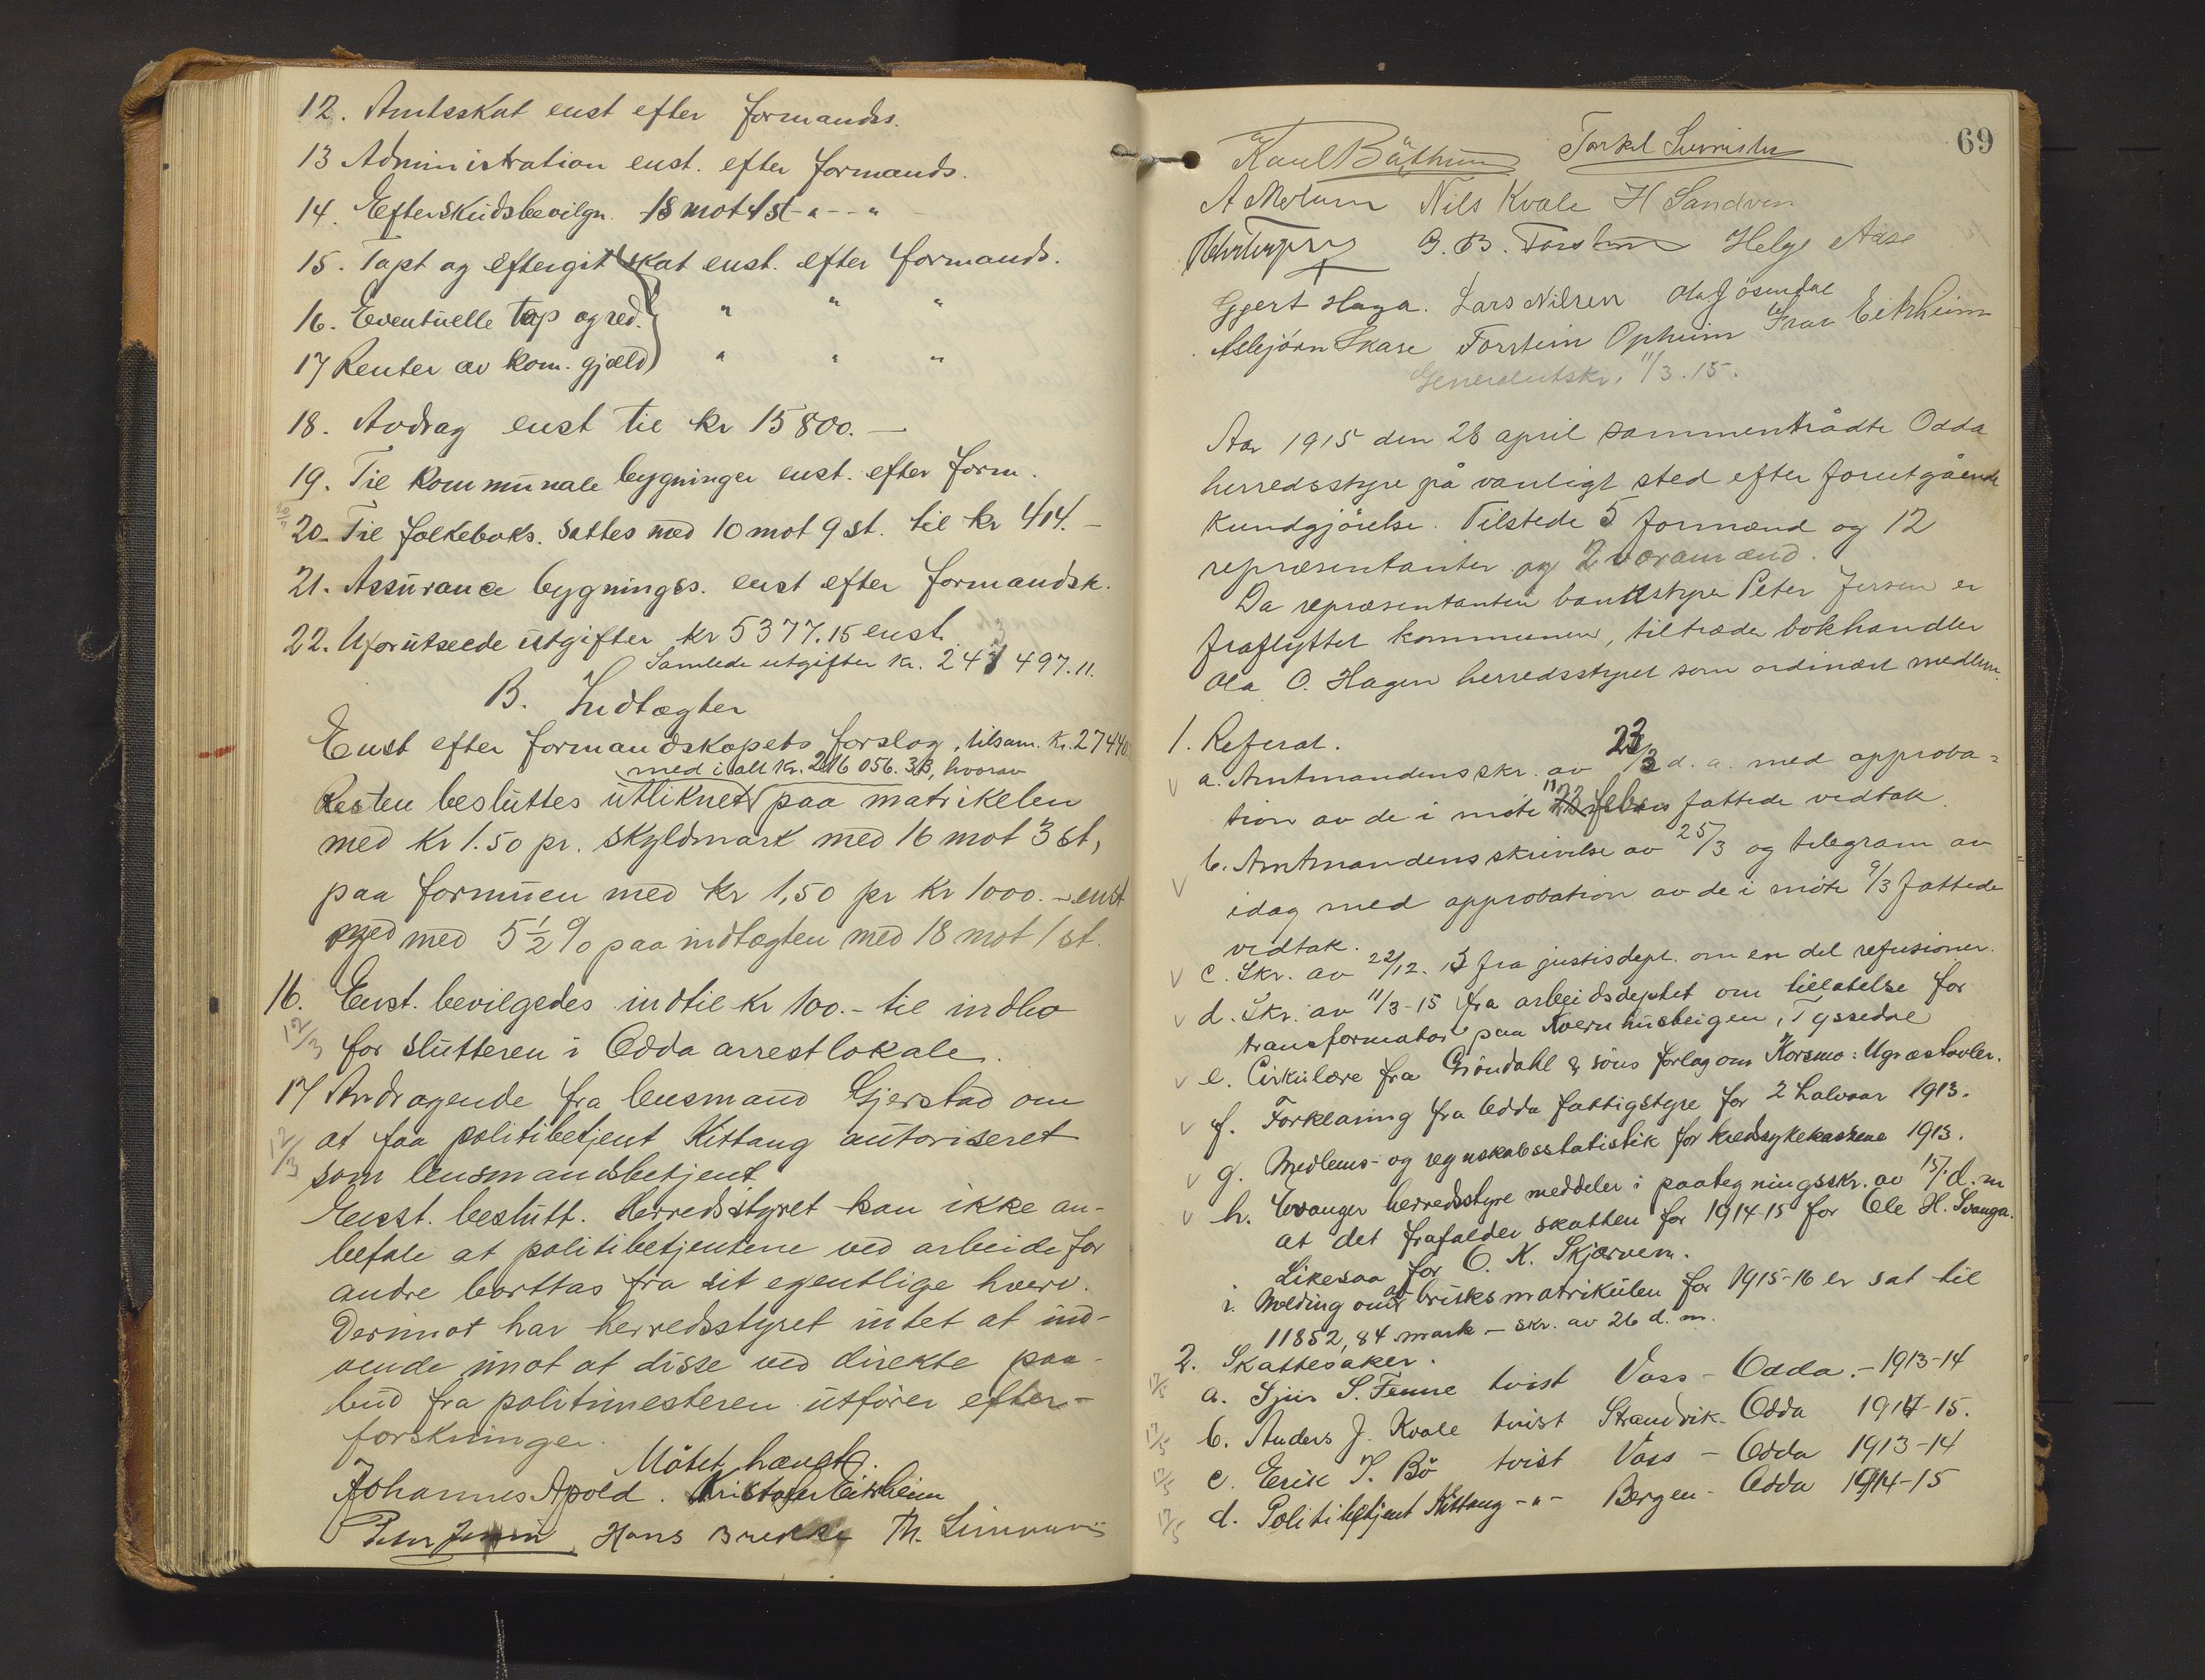 12. Amtsskat enst efter formands.
13 Administration enst. efter formands.
14. Efterskudsbevilgn. 18 mot 1 st - " - - "
15. Tapt og eftergit skat enst. efter formands.
16. Eventuelle tap og red. " " "
17 Renter av kom. gjæld " " "
18. Avdrag enst til kr 15800.—
19. Til kommunale bygninger enst. efter form.
20. Til folkeboks. sattes med 10 mot 9 st. til kr 414.-
21. Assurance bygningss. enst efter formandsk.
22. Uforutseede utgifter kr 5377.15 enst.
Samlede utgifter kr. 243 497.11.
B. Indtægter
Enst efter formandskapets forslag, tilsam. kr. 27440
med i alt kr. 216 056.33, hvorav
Resten besluttes utliknet paa matrikelen
med kr 1.50 pr. skyldmark med 16 mot 3 st,
paa formuen med kr 1,50 pr kr 1000.- enst
og med 5 1/2 % paa indtægten med 18 mot 1 st.
16. Enst. bevilgedes indtil kr 100.- til indbo
12/3 for slutteren i Odda arrestlokale.
17 Andragende fra lensmand Gjerstad om
12/3 at faa politibetjent Kittang autoriseret
som lensmandsbetjent
Enst. beslutt. Herredsstyret kan ikke an-
befale at politibetjentene ved arbeide for
andre borttas fra sit egentlige hverv.
Derimot har herredsstyret intet at ind-
vende imot at disse ved direkte paa-
bud fra politimesteren utfører efter-
forskninger.
Møtet hævet.
Johannes Apold. Kristofer Eitrheim
Peter Jersin Hans Brekke Th.
69
Karl Bäthun Torkel
A Motum Nils Kvale H Sandven
G. B. Helge Aase
Eggert Haga. Lars Nilsen Olaf Jösendal
Asbjørn Skare Torstein Opheim Ivar Eitrheim
Generalutskr. 11/3.15.
Aar 1915 den 28 april sammentrådte Odda
herredsstyre på vanligt sted efter forutgående
kundgjørelse. Tilstede 5 formænd og 12
repræsentanter og 2 varamænd.
Da repræsentanten bankstyrer Peter Jersin er
fraflyttet kommunen, tiltræder bokhandler
Ola O. Hagen herredsstyret som ordinært medlem.
1. Referat.
v a. Amtmandens skr. av 23/3 d. a. med approba=
tion av de i møte 11 febr. fattede vedtak.
v b. Amtmandens skrivelse av 25/3 og telegram av
idag med approbation av de i møte 9/3 fattede
vedtak.
v c. Skr. av 22/12. 13 fra justisdept. om en del refusioner.
v d. Skr. av 11/3-15 fra arbeidsdeptet om tillatelse for
transformator paa Kvernhusteigen, Tyssedal
v e. Cirkulære fra Grøndahl & søns forlag om Korsmo: Ugræstavler.
v f. Forklaring fra Odda fattigstyre for 2 halvaar 1913.
v g. Medlems- og regnskabsstatistik for kredsykekassene 1913.
v h. Evanger herredsstyre meddeler i paategningsskr. av 15/. d. m
at det frafalder skatten for 1914-15 for Ole H. Svanga.
Likesaa for O. K. Skjærvem.
i. Melding om at bruksmatrikulen for 1915-16 er sat til
11852,84 mark - skr. av 26 d. m.
2. Skattesaker.
17/5 a. Sjur S. Fenne tvist Voss - Odda. - 1913-14
17/5 b. Anders J. Kvale tvist Strandvik - Odda 1914-15.
17/5 c. Erik S. Bø tvist Voss - Odda 1913-14
17/5 d. Politibetjent Kittang - " - Bergen - Odda 1914-15